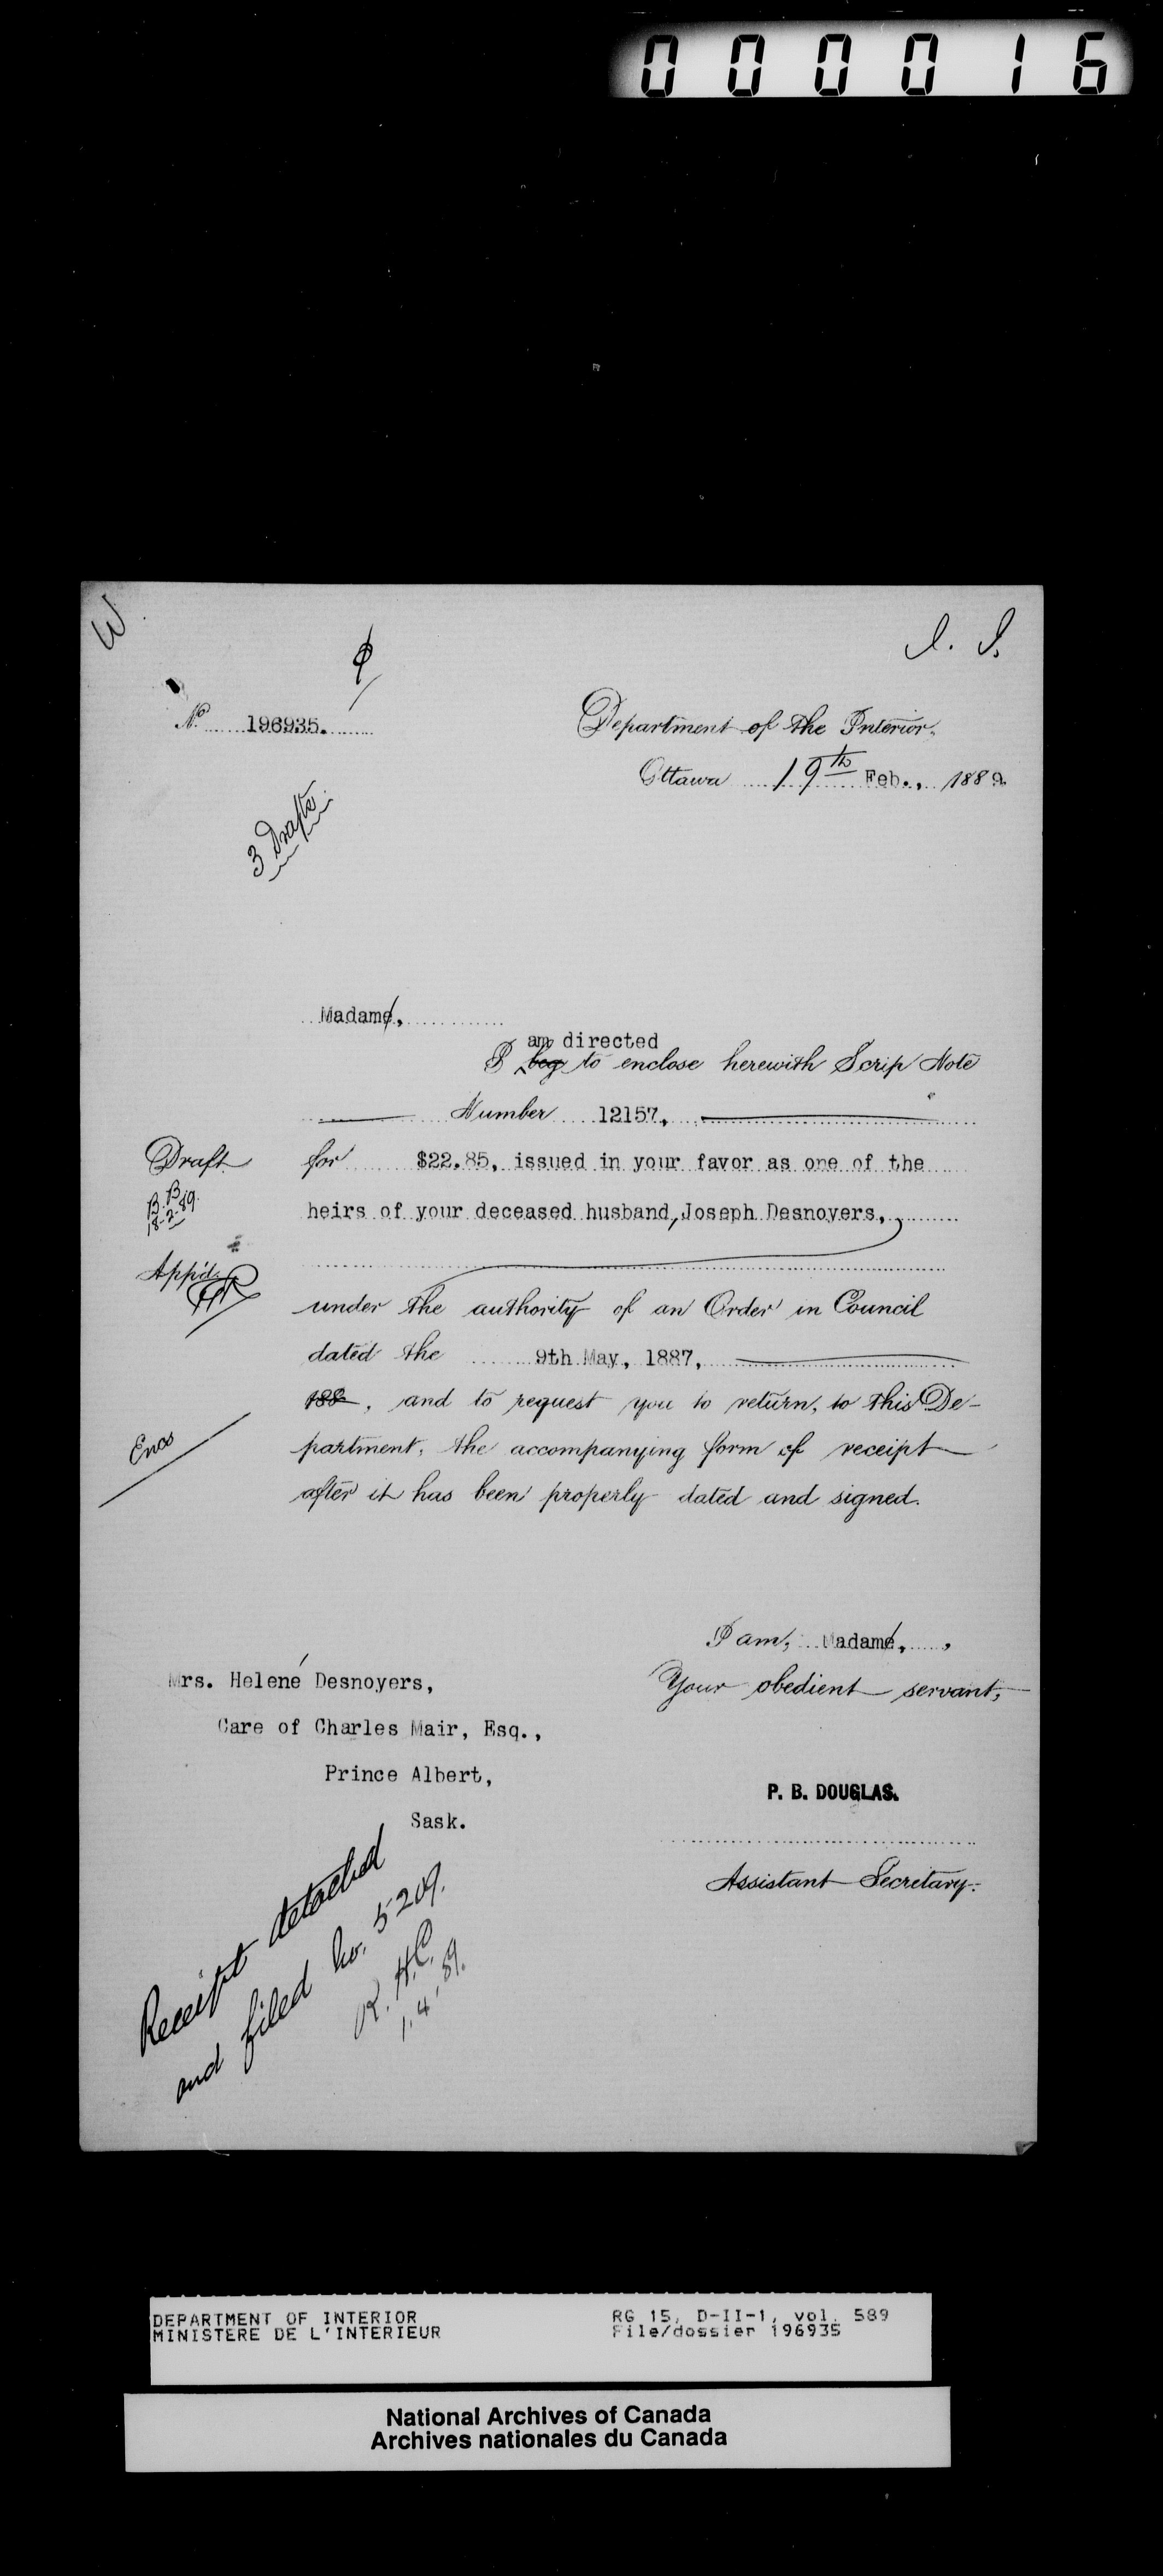 000016
W.
I. I.
No 196935.
Department of the Interior.
Ottawa 19th Feb., 1889.
3 Drafts.
Madame,
am directed
I beg to enclose herewith Scrip Note
Number 12157,
Draft
for $22.85, issued in your favor as one of the
B.B.
18-2-89.
heirs of your deceased husband, Joseph Desnoyers,
App'd.
under the authority of an Order in Council
dated the 9th May, 1887,
188 , and to request you to return, to this De-
Encs
partment, the accompanying form of receipt
after it has been properly dated and signed.
I am, Madame, ,
Mrs. Helené Desnoyers,
Your obedient servant,
Care of Charles Mair, Esq.,
Prince Albert,
P. B. DOUGLAS.
Sask.
Assistant Secretary.
Receipt detached
and filed No. 5209.
R. H.C.
1.4.'89.
DEPARTMENT OF INTERIOR
MINISTERE DE L'INTERIEUR
RG 15, D-II-1, vol. 589
File/dossier 196935
National Archives of Canada
Archives nationales du Canada